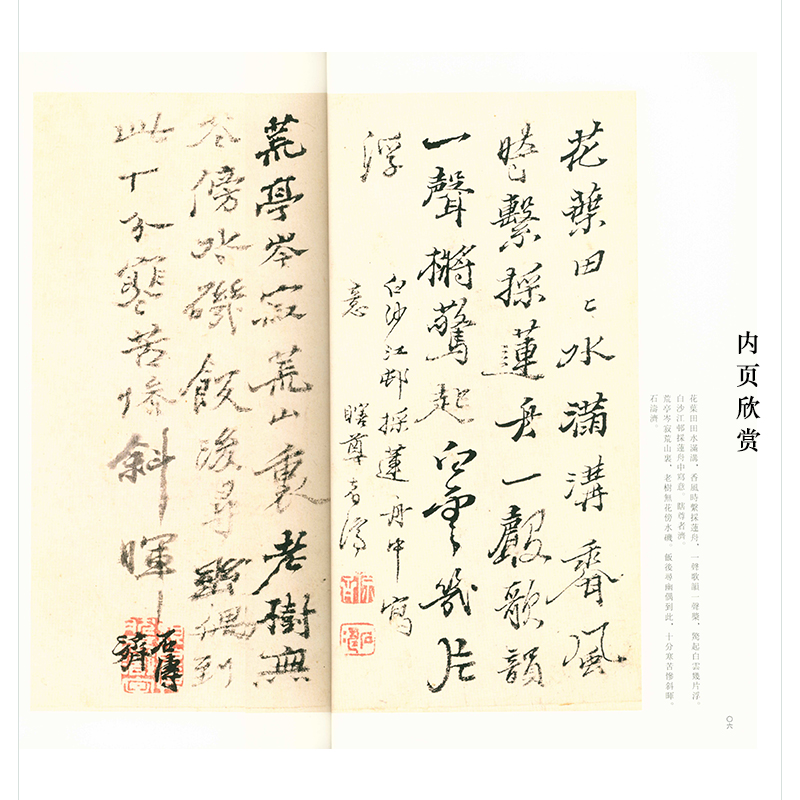 内页欣赏
花葉田田水滿溝,香風時繫採蓮舟,一聲歌韻一聲槳,驚起白雲幾片浮。
白沙江邨採蓮舟中寫意,瞎尊者濟。
荒亭岑寂荒山裏,老樹無花傍水磯,飯後尋幽偶到此,十分寒苦慘斜暉。
石濤濟。
〇六
花葉田〻水滿溝香風
時繫採蓮舟一殸歌韻
一聲槳驚起白雲幾片
浮
白沙江邨採蓮舟中寫
意 瞎尊者濟
荒亭岑寂荒山裏老樹無
花傍水磯飯後尋幽偶到
此十分寒苦慘斜暉
石濤
濟